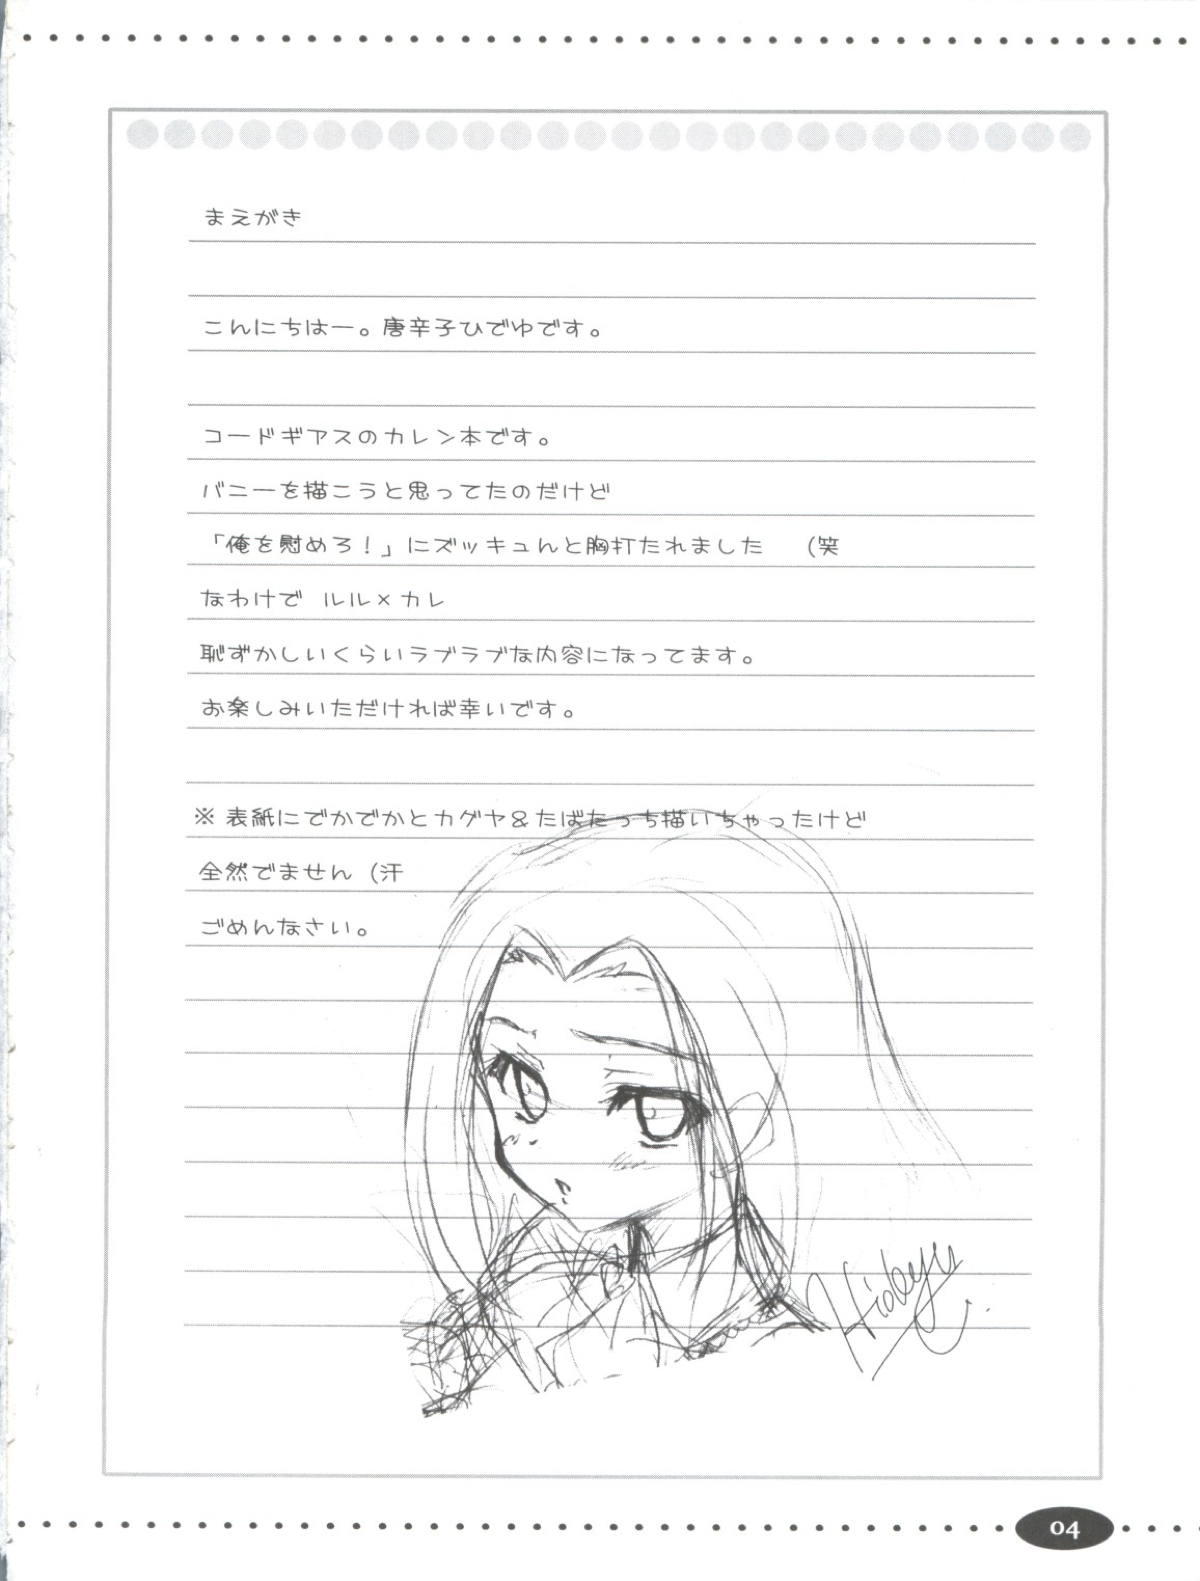 まえがき
こんにちはー。唐辛子ひでゆです。
コードギアスのカレン本です。
バニーを描こうと思ってたのだけど
「俺を慰めろ！」にズッキュんと胸打たれました　（笑
なわけで ルル×カレ
恥ずかしいくらいラブラブな内容になってます。
お楽しみいただければ幸いです。
※表紙にでかでかとカグヤ＆たばたっち描いちゃったけど
全然でません（汗
ごめんなさい。
Hideyu
04